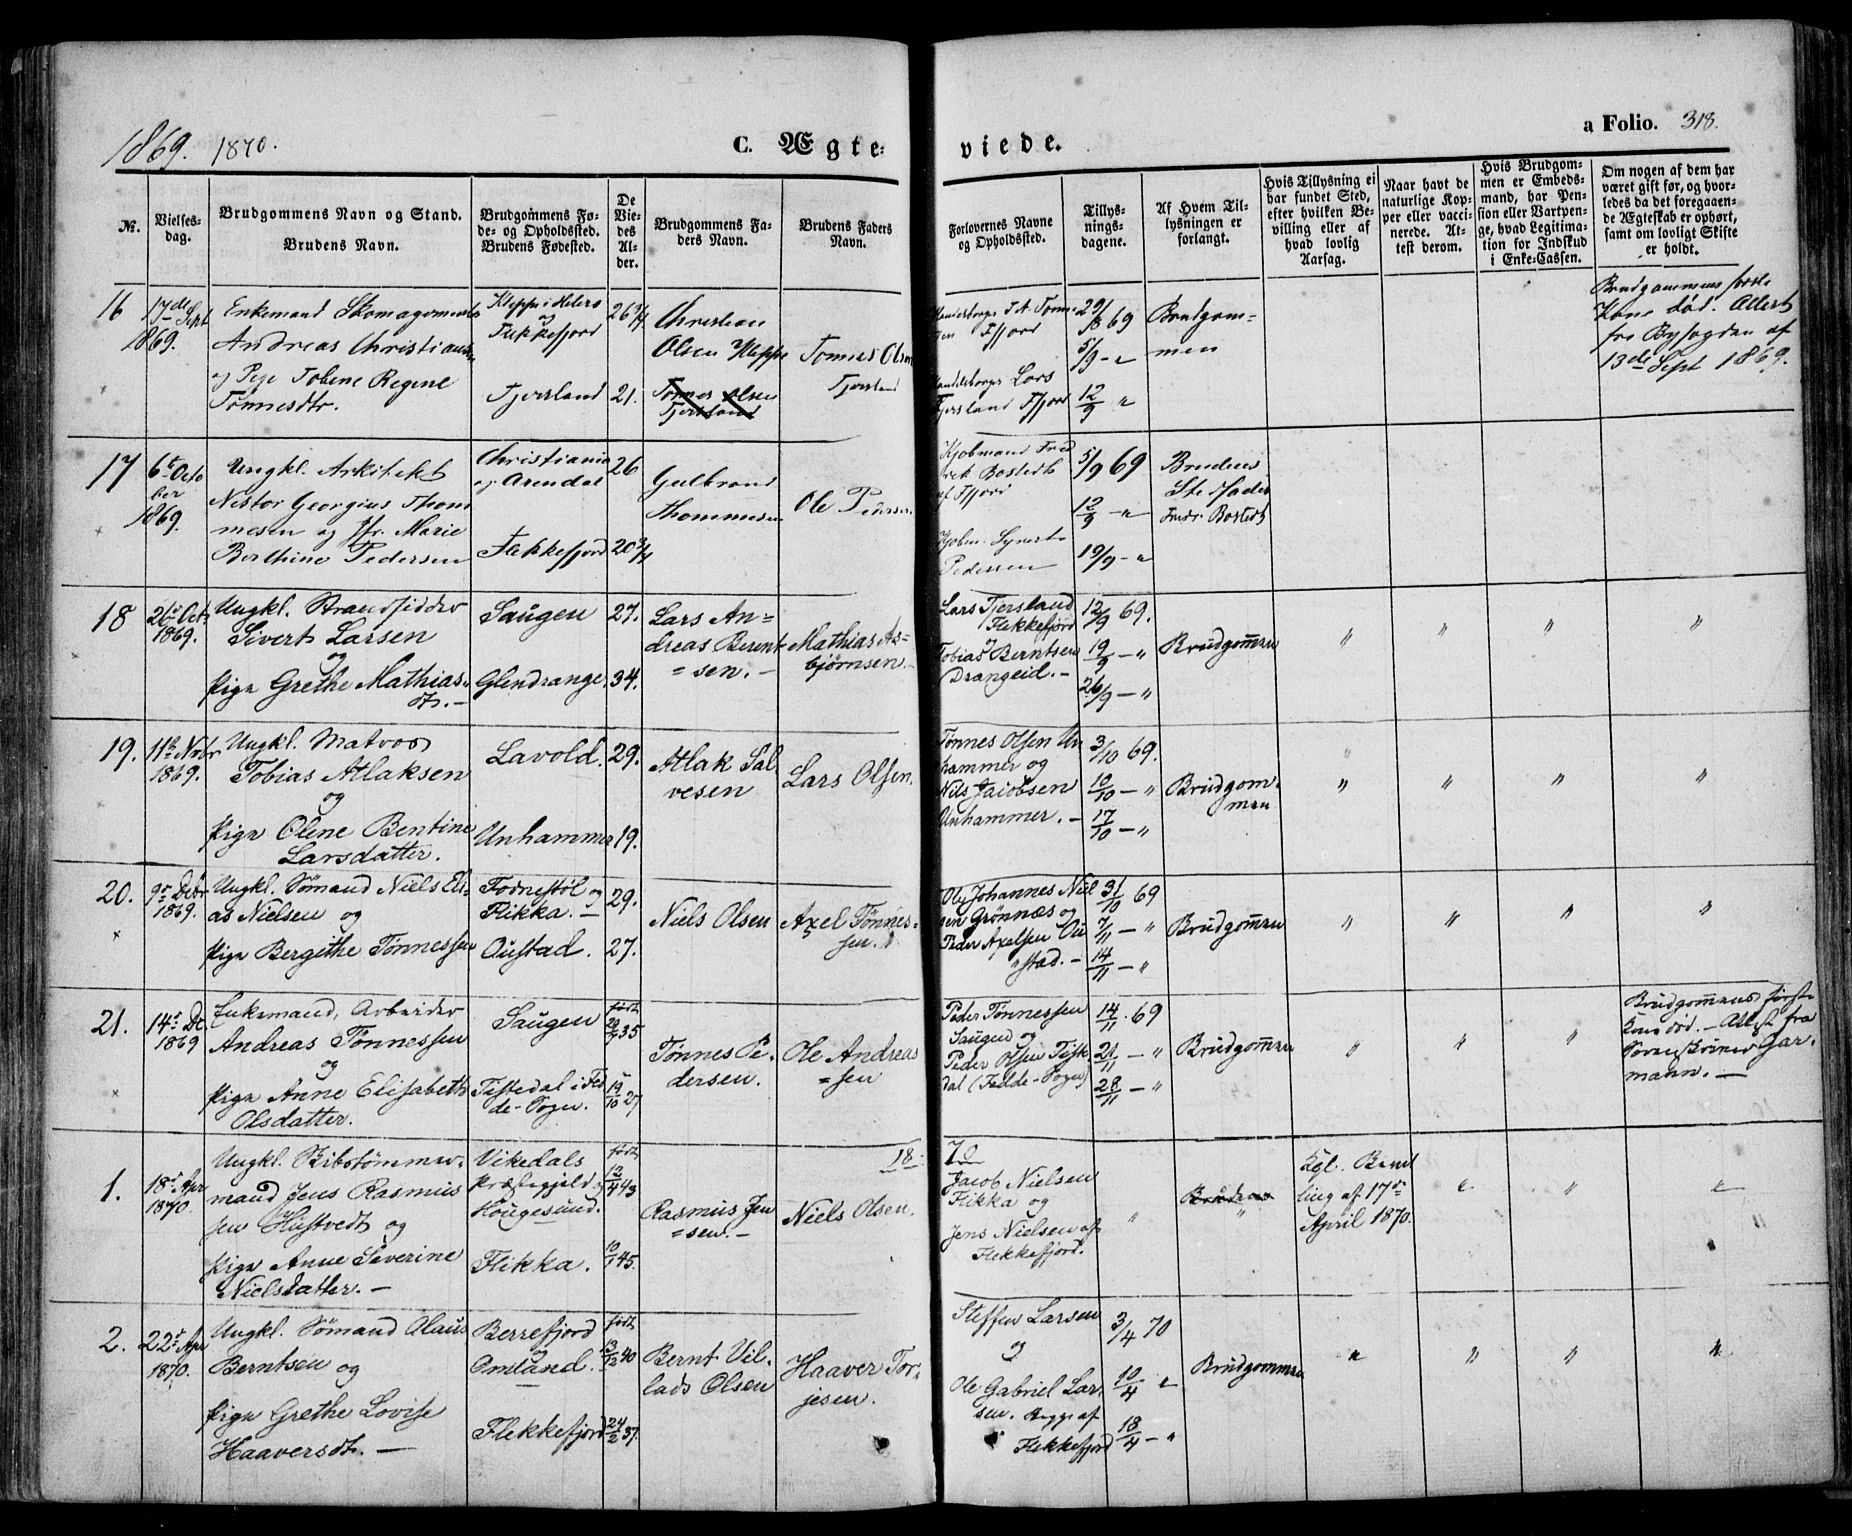 1869. 1870.
C. Ægte-
viede.
a Folio. 318.
№.
Vielses-
dag.
Brudgommens Navn og Stand.
Brudens Navn.
Brudgommens Fø-
de- og Opholdssted.
Brudens Fødested.
De
Vie-
des
Al-
der.
Brudgommens Fa-
ders Navn.
Brudens Faders
Navn.
Forlovernes Navne
og Opholdssted.
Tillys-
nings-
dagene.
Af Hvem Til-
lysningen er
forlangt.
Hvis Tillysning ei
har fundet Sted,
efter hvilken Be-
villing eller af
hvad lovlig
Aarsag.
Naar havt de
naturlige Kop-
per eller vacci-
nerede. At-
test derom.
Hvis Brudgom-
men er Embeds-
mand, har Pen-
sion eller Vartpen-
ge, hvad Legitima-
tion for Indskud
i Enke-Cassen.
Om nogen af dem har
været gift før, og hvor-
ledes da det foregaaen-
de Ægteskab er ophørt,
samt om lovligt Skifte
er holdt.
16
17de Sept
1869.
Enkemand
Andreas Christians
og Pige Tobine Regine
Tønnesdtr.
og
Flekkefjord
Tjersland
26 3/4
21.
Christian
Olsen Kleppe
Tønnes Olsen
Tjersland
Tønnes Olsen
Tjersland
Fjord
Lars
Tjersland Fjord
29/8 69
5/9 - "
12/9 "
Brudgom-
men
Brudgommens første
Kone død. Attest
fra Byfogden af
13de Sept 1869.
17
6te Octo
ber
1869.
Ungkl. Arkitekt
Nestor Georgius Thom
mesen og Jfr. Marie
Berthine Pedersen
Christiania
og Arendal
Flekkefjord
26
20 3/4
Gulbrand
Thommesen
Ole Pedersen
Kjøbmand Fred
rik Bostedt
af Fjord
Kjøbm. Syvert
Pedersen
5/9 69
12/9 - "
19/9 - "
Brudens
Stedfader
Fredr. Bostedt
18
26de Oct.
1869.
Ungkl. Strandsidder
Sivert Larsen
og
Pige Grethe Mathias-
dtr. -
Saugen
Glendrange
27.
34.
Lars An=
dreas Berent
=sen. -
Mathias As=
bjørnsen -
Lars Tjersland
Flekkefjord
og
Tobias Berntsen
Drangeid. -
12/9 69.
19/9 - "
26/9 - "
Brudgommen
"
"
"
"
19.
11te Novbr
1869.
Ungkl. Matros
Tobias Atlaksen
og
Pige Olene Bentine
Larsdatter.
Lavold.
Unhammer
29.
19.
Atlak Sal
vesen
Lars Olsen.
Tønnes Olsen Un
hammer og
Nils Jacobsen
Unhammer. -
3/10 69.
10/10 - "
17/10 - "
Brudgom-
men
"
"
"
"
20.
9de Decbr
1869.
Ungkl. Sømand Niels Eli-
as Nielsen og
Pige Bergithe Tønnessen
Fodnestøl og
Flikka. -
Oustad.
29.
27.
Niels Olsen
Axel Tønnes=
sen.
Ole Johannes Niel
sen Grønnæs og
Peder Axelsen Ou
"stad. -
31/10 69
7/11 - "
14/11 - "
Brudgommen
"
"
"
"
21.
14de De.
1869
Enkemand, Arbeider
Andreas Tønnessen
og
Pige Anne Elisabeth
Olsdatter.
Saugen
Tistedal i Fed
de-Sogn.
født
35
19/10 27
Tønnes Pe-
dersen.
Ole Andreas
=sen
Peder Tønnessen
Saugen og
Peder Olsen Tiste
dal (Fedde-Sogn)
14/11 69
21/11 - "
28/11 - "
Brudgommen
"
"
"
Brudgommens første
Kone død. - Attest fra
Sorenskriver Gar-
mann. -
1.
18de Apr
1870.
Ungkl. Bibstømmer-
mand Jens Rasmus
sen Hustvedt og
Pige Anne Severine
Nielsdatter. -
Vikedals
Præstegjeld og
Hougesund.
Flikka.
født
12/4 43
10/1 45.
Rasmus Jen
=sen. -
Niels Olsen.
18
70
Jacob Nielsen
Flikka og
Jens Nielsen af
Flekkefjord.
"
Brudens
"
Kgl. Bevil
ling af 17de
April 1870.
"
"
"
2.
22de Apr
1870.
Ungkl. Sømand Olaus
Berntsen og
Pige Grethe Lovise
Haaversdtr. -
Berrefjord
og
Omland.
Flekkefjord
født
13/12 40
24/2 37.
Bernt Vil-
lads Olsen
Haaver Tor-
jesen.
Steffen Larsen
og
Ole Gabriel Lar-
sen. Begge af
Flekkefjord
3/4 70
10/4 "
18/4 - "
Brudgommen
"
"
"
"